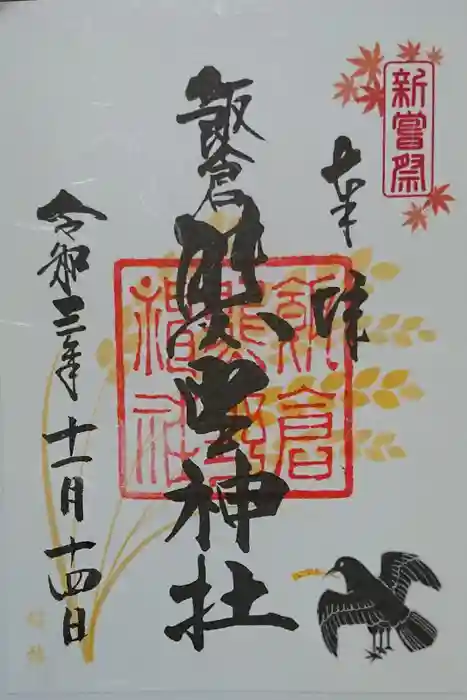 新嘗祭
奉拝
飯倉
熊野神社
令和三年
十一月十四日